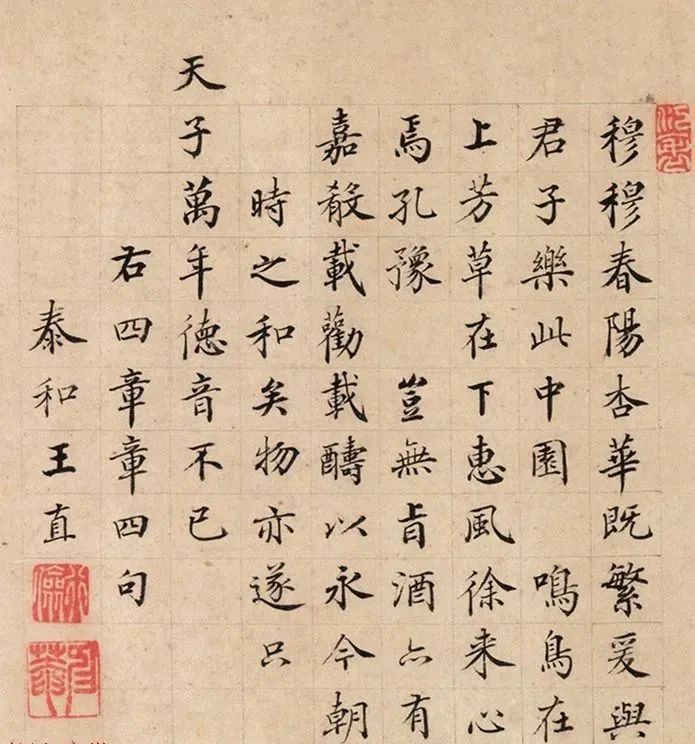 穆穆春陽杏華既繁爰與
君子樂此中園　鳴鳥在
上芳草在下惠風徐来心
焉孔豫　豈無旨酒亦有
嘉殽載勸載醻以永今朝
時之和矣物亦遂只
天子萬年德音不已
右四章章四句
泰和王直